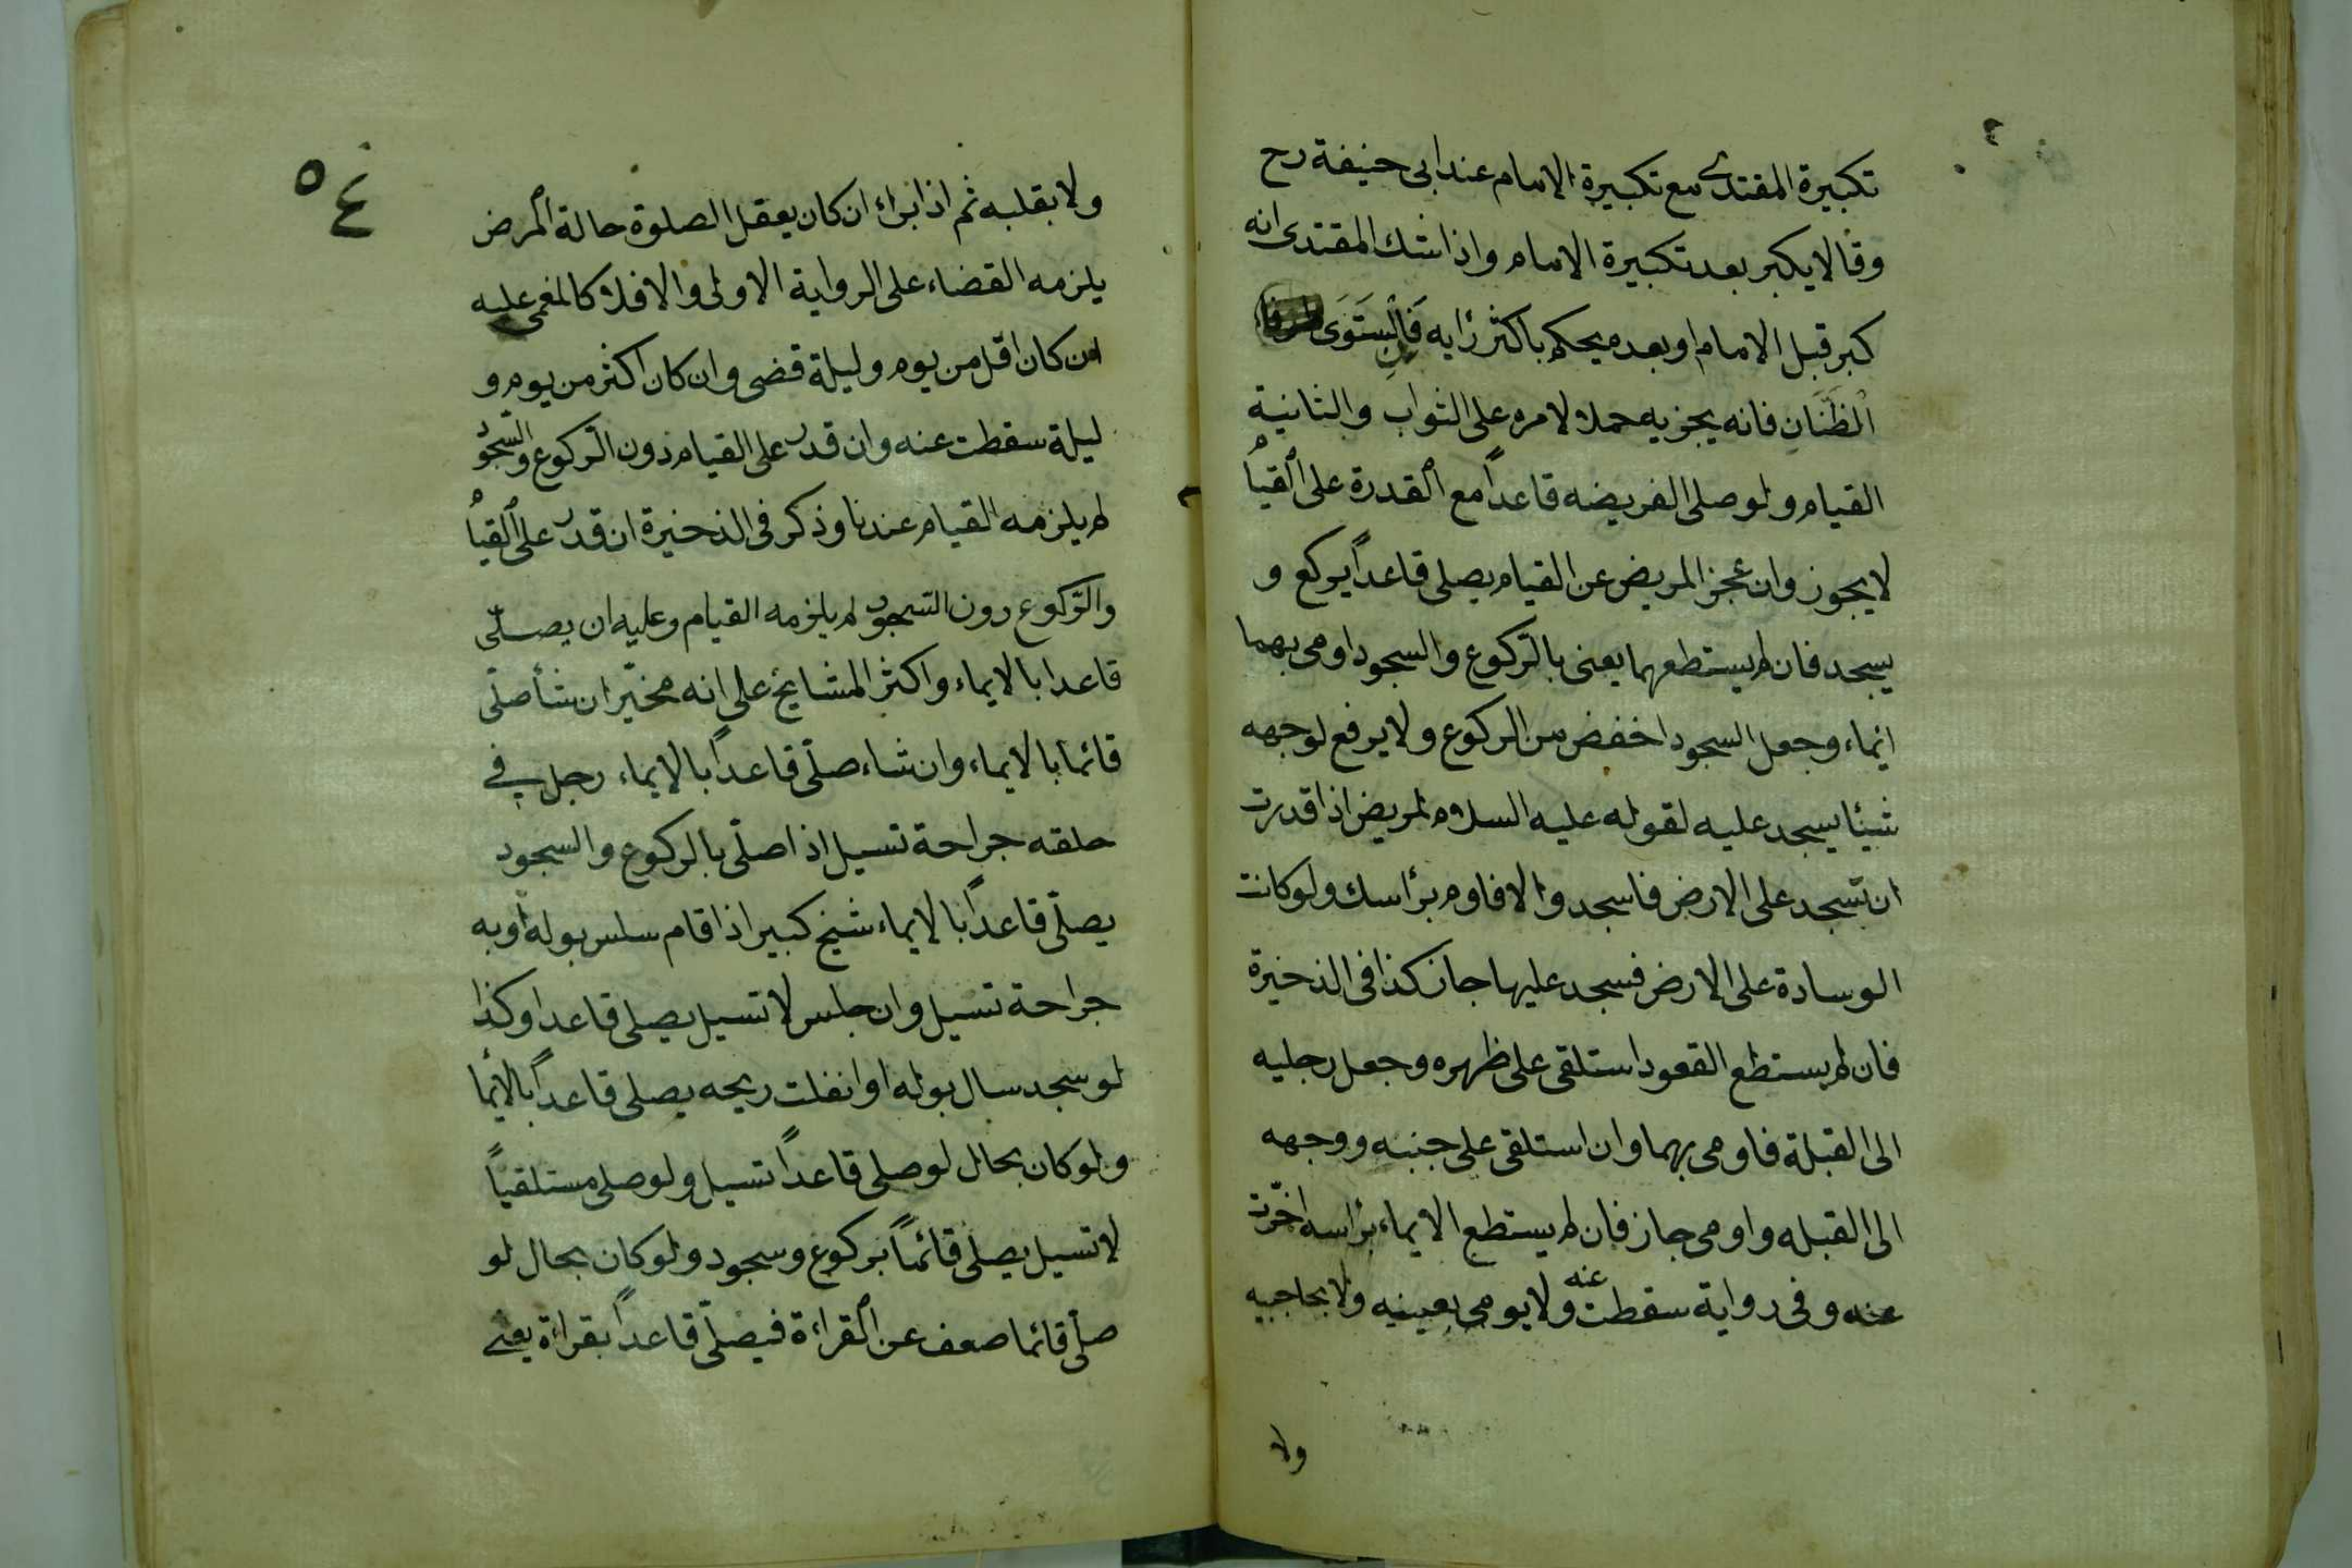 تكبيرة المقتدى مع تكبيرة الامام عند ابى حنيفة رح
وقالا يكبر بعد تكبيرة الامام واذا شك المقتدى انه
كبر قبل الامام او بعده يحكم باكثر رايه فان استوى
الظنان فانه يجزيه حملا لامره على الثواب والثانية
القيام ولو صلى الفريضه قاعداً مع القدرة على القيام
لا يجوز وان عجز المريض عن القيام يصلى قاعداً يركع و
يسجد فان لم يستطعهما يعنى بالركوع والسجود اومى بهما
ايماء وجعل السجود اخفض من الركوع ولا يرفع لوجهه
شيئا يسجد عليه لقوله عليه السلام لمريض اذا قدرت
ان تسجد على الارض فاسجد والا فاوم برأسك ولو كانت
الوسادة على الارض فسجد عليها جاز كذا فى الذخيرة
فان لم يستطع القعود استلقى على ظهره وجعل رجليه
الى القبلة فاومى بهما وان استلقى على جنبه ووجهه
الى القبله واومى جاز فان لم يستطع الايماء برأسه اخّرت
عنه وفى رواية سقطت عنه ولا يومى بعينيه ولا بحاجبيه
ولا
٥٤
ولا بقلبه ثم اذا برأ ان كان يعقل الصلوة حالة المرض
يلزمه القضاء على الرواية الاولى والا فلا كالمغمى عليه
ان كان اقل من يوم وليلة قضى وان كان اكثر من يوم و
ليلة سقطت عنه وان قدر على القيام دون الركوع والسجود
لم يلزمه القيام عندنا وذكر فى الذخيرة ان قدر على القيام
والركوع دون السجود لم يلزمه القيام وعليه ان يصلّى
قاعدا بالايماء واكثر المشايخ على انه مخيّر ان شأ صلّى
قائما بالايماء وان شاء صلّى قاعداً بالايماء رجل فى
حلقه جراحة تسيل اذا صلّى بالركوع والسجود
يصلّى قاعداً بالايماء شيخ كبير اذا قام سلس بوله او به
جراحة تسيل وان جلس لا تسيل يصلى قاعدا وكذا
لو سجد سال بوله او انفلت ريحه يصلى قاعداً بالايما
ولو كان بحال لو صلى قاعداً تسيل ولو صلى مستلقياً
لا تسيل يصلّى قائماً بركوع وسجود ولو كان بحال لو
صلّى قائما ضعف عن القراءة فيصلّى قاعداً بقراءة يعنى